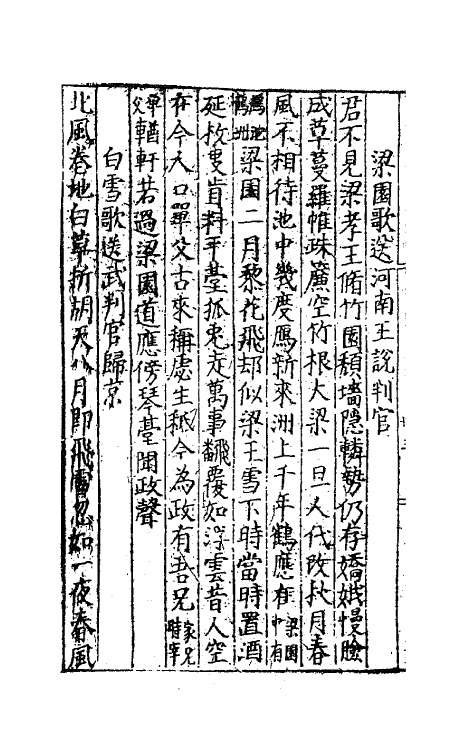 梁園歌送河南王說判官
君不見梁孝王脩竹園頹墻隱轔勢仍存嬌娥慢臉
成草蔓羅帷珠簾空竹根大梁一旦人代改秋月春
風不相待池中幾度鴈新來洲上千年鶴應在梁園中有
鴈池鶴洲梁園二月梨花飛却似梁王雪下時當時置酒
延枚叟肯料平臺狐兎走萬事翻覆如浮雲昔人空
在今人口單父古來稱虙生秪今為政有吾兄家兄時宰
單父輶軒若過梁園道應傍琴臺聞政聲
白雪歌送武判官歸京
北風卷地白草折胡天八月即飛雪忽如一夜春風